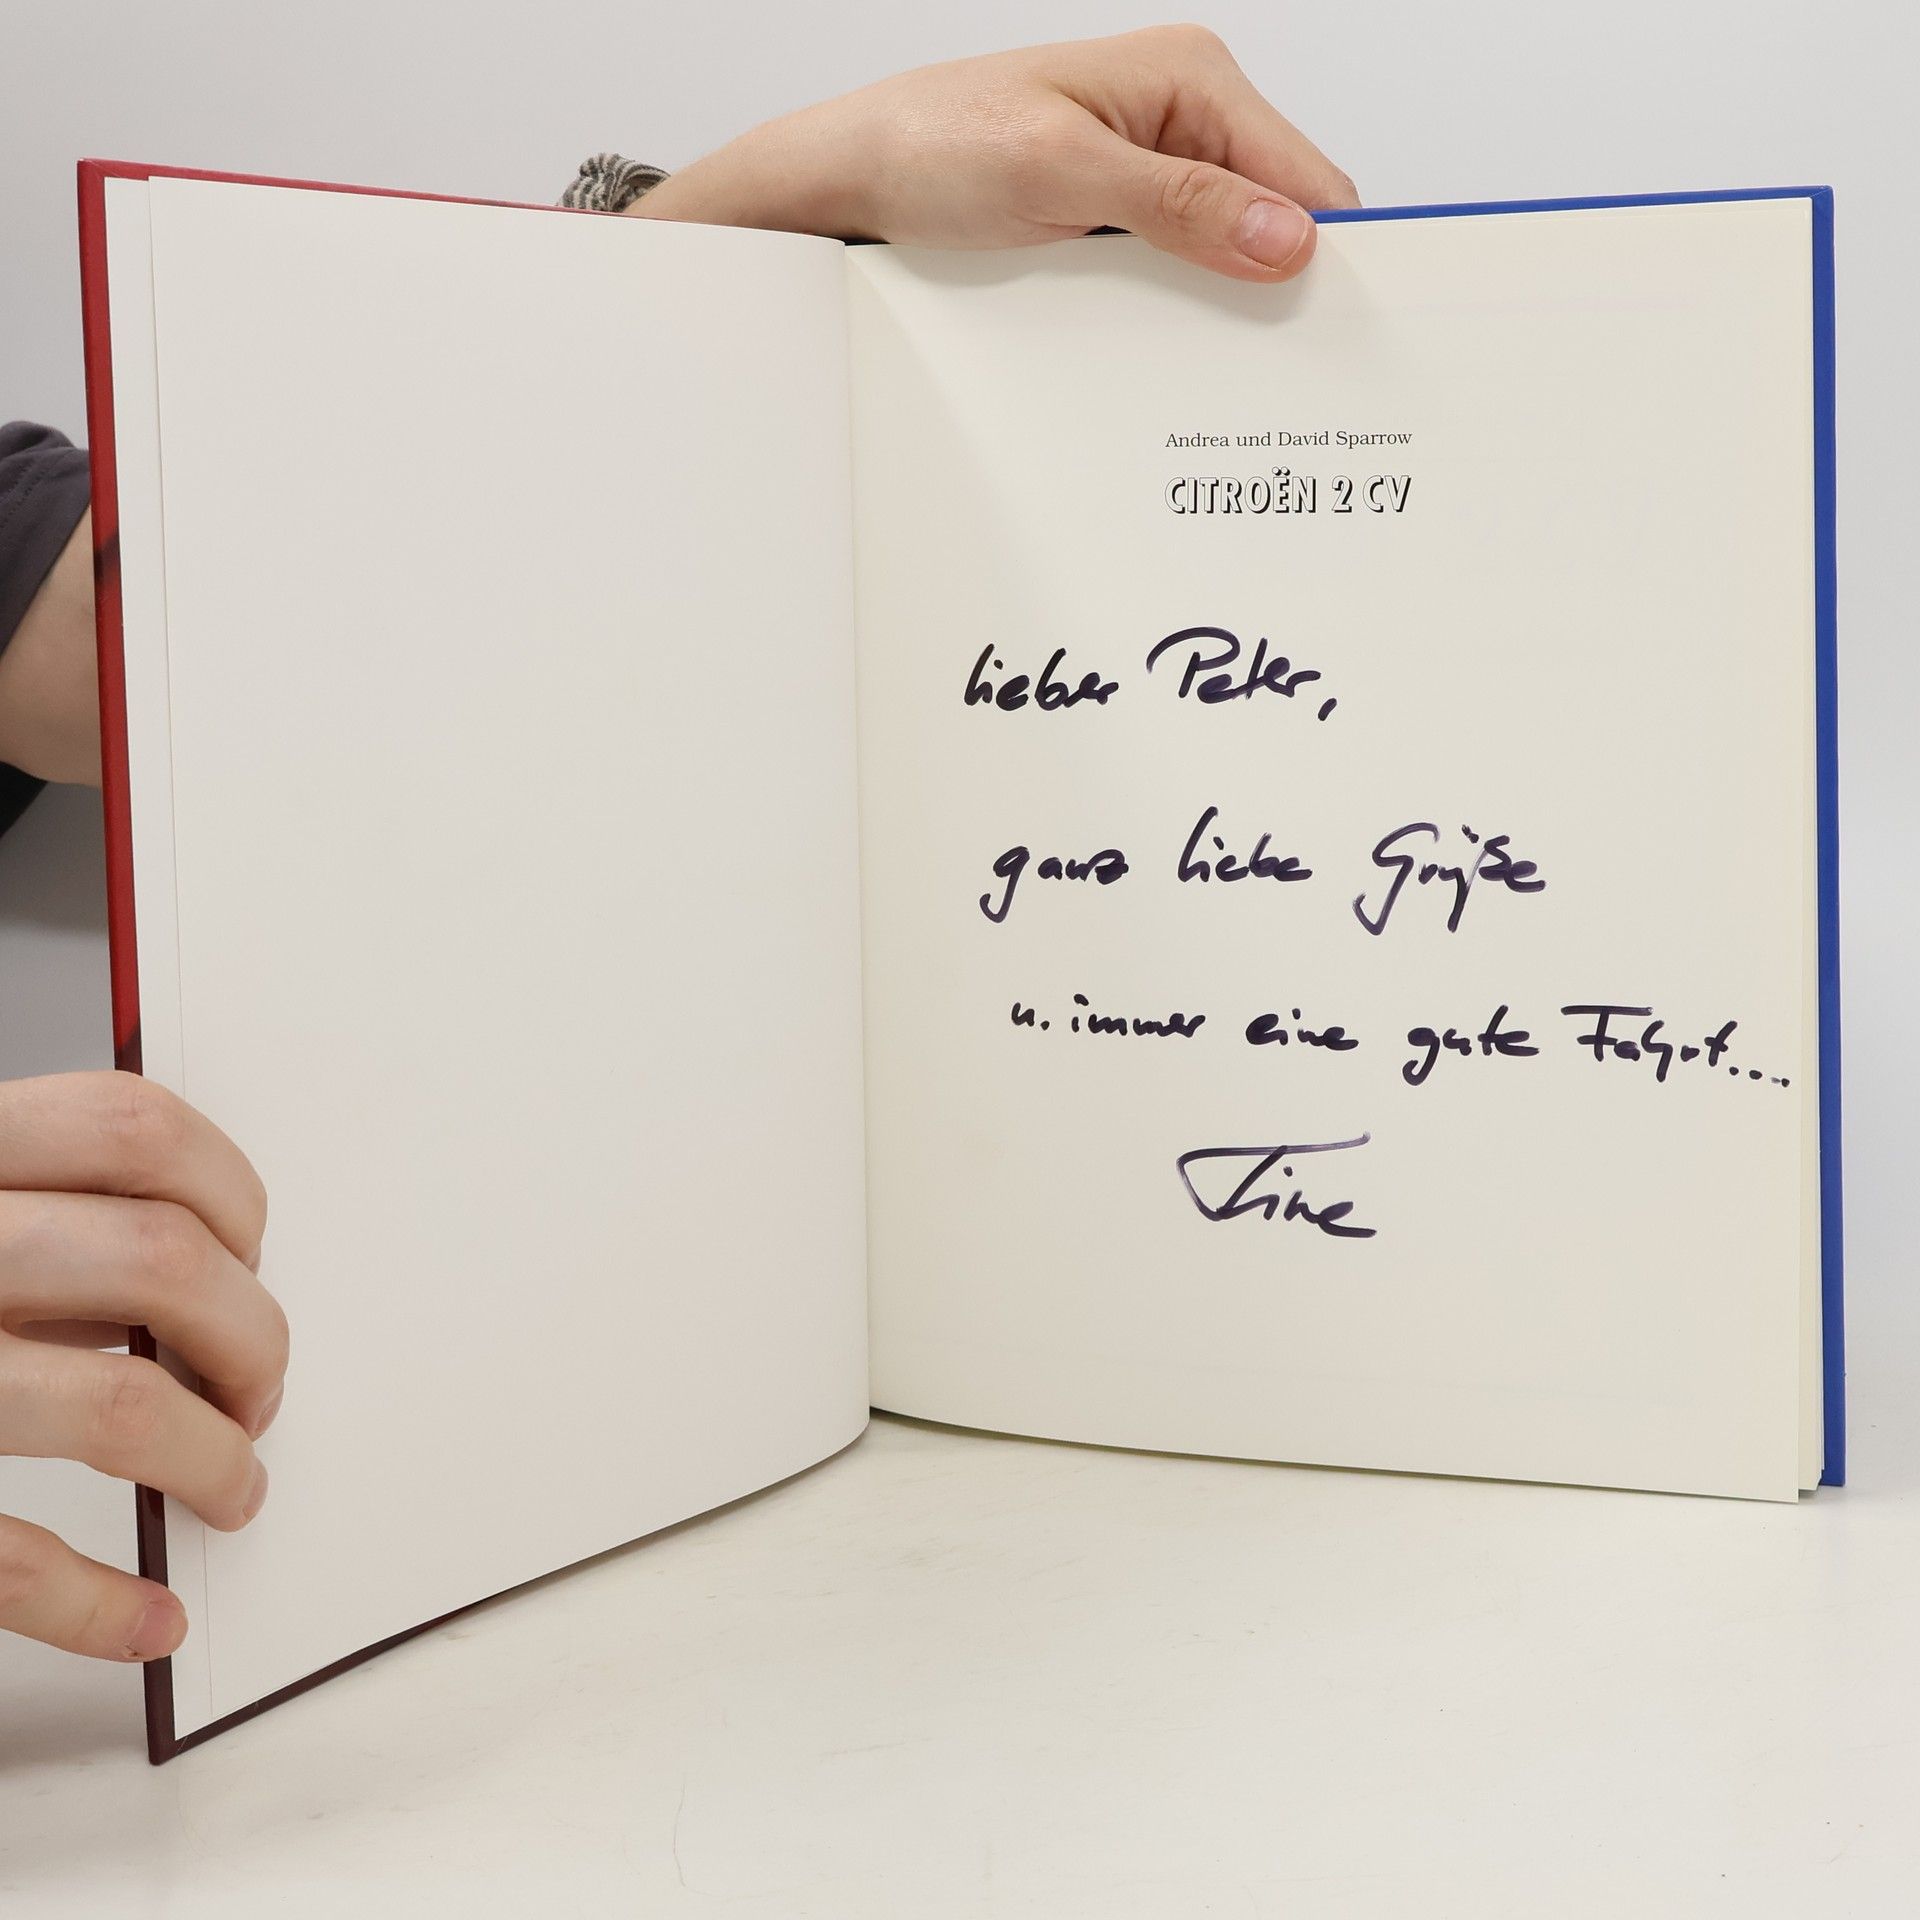 Andrea und David Sparrow
CITROËN 2 CV
lieber Peter,
ganz liebe Grüße
u. immer eine gute Fahrt....
Tine